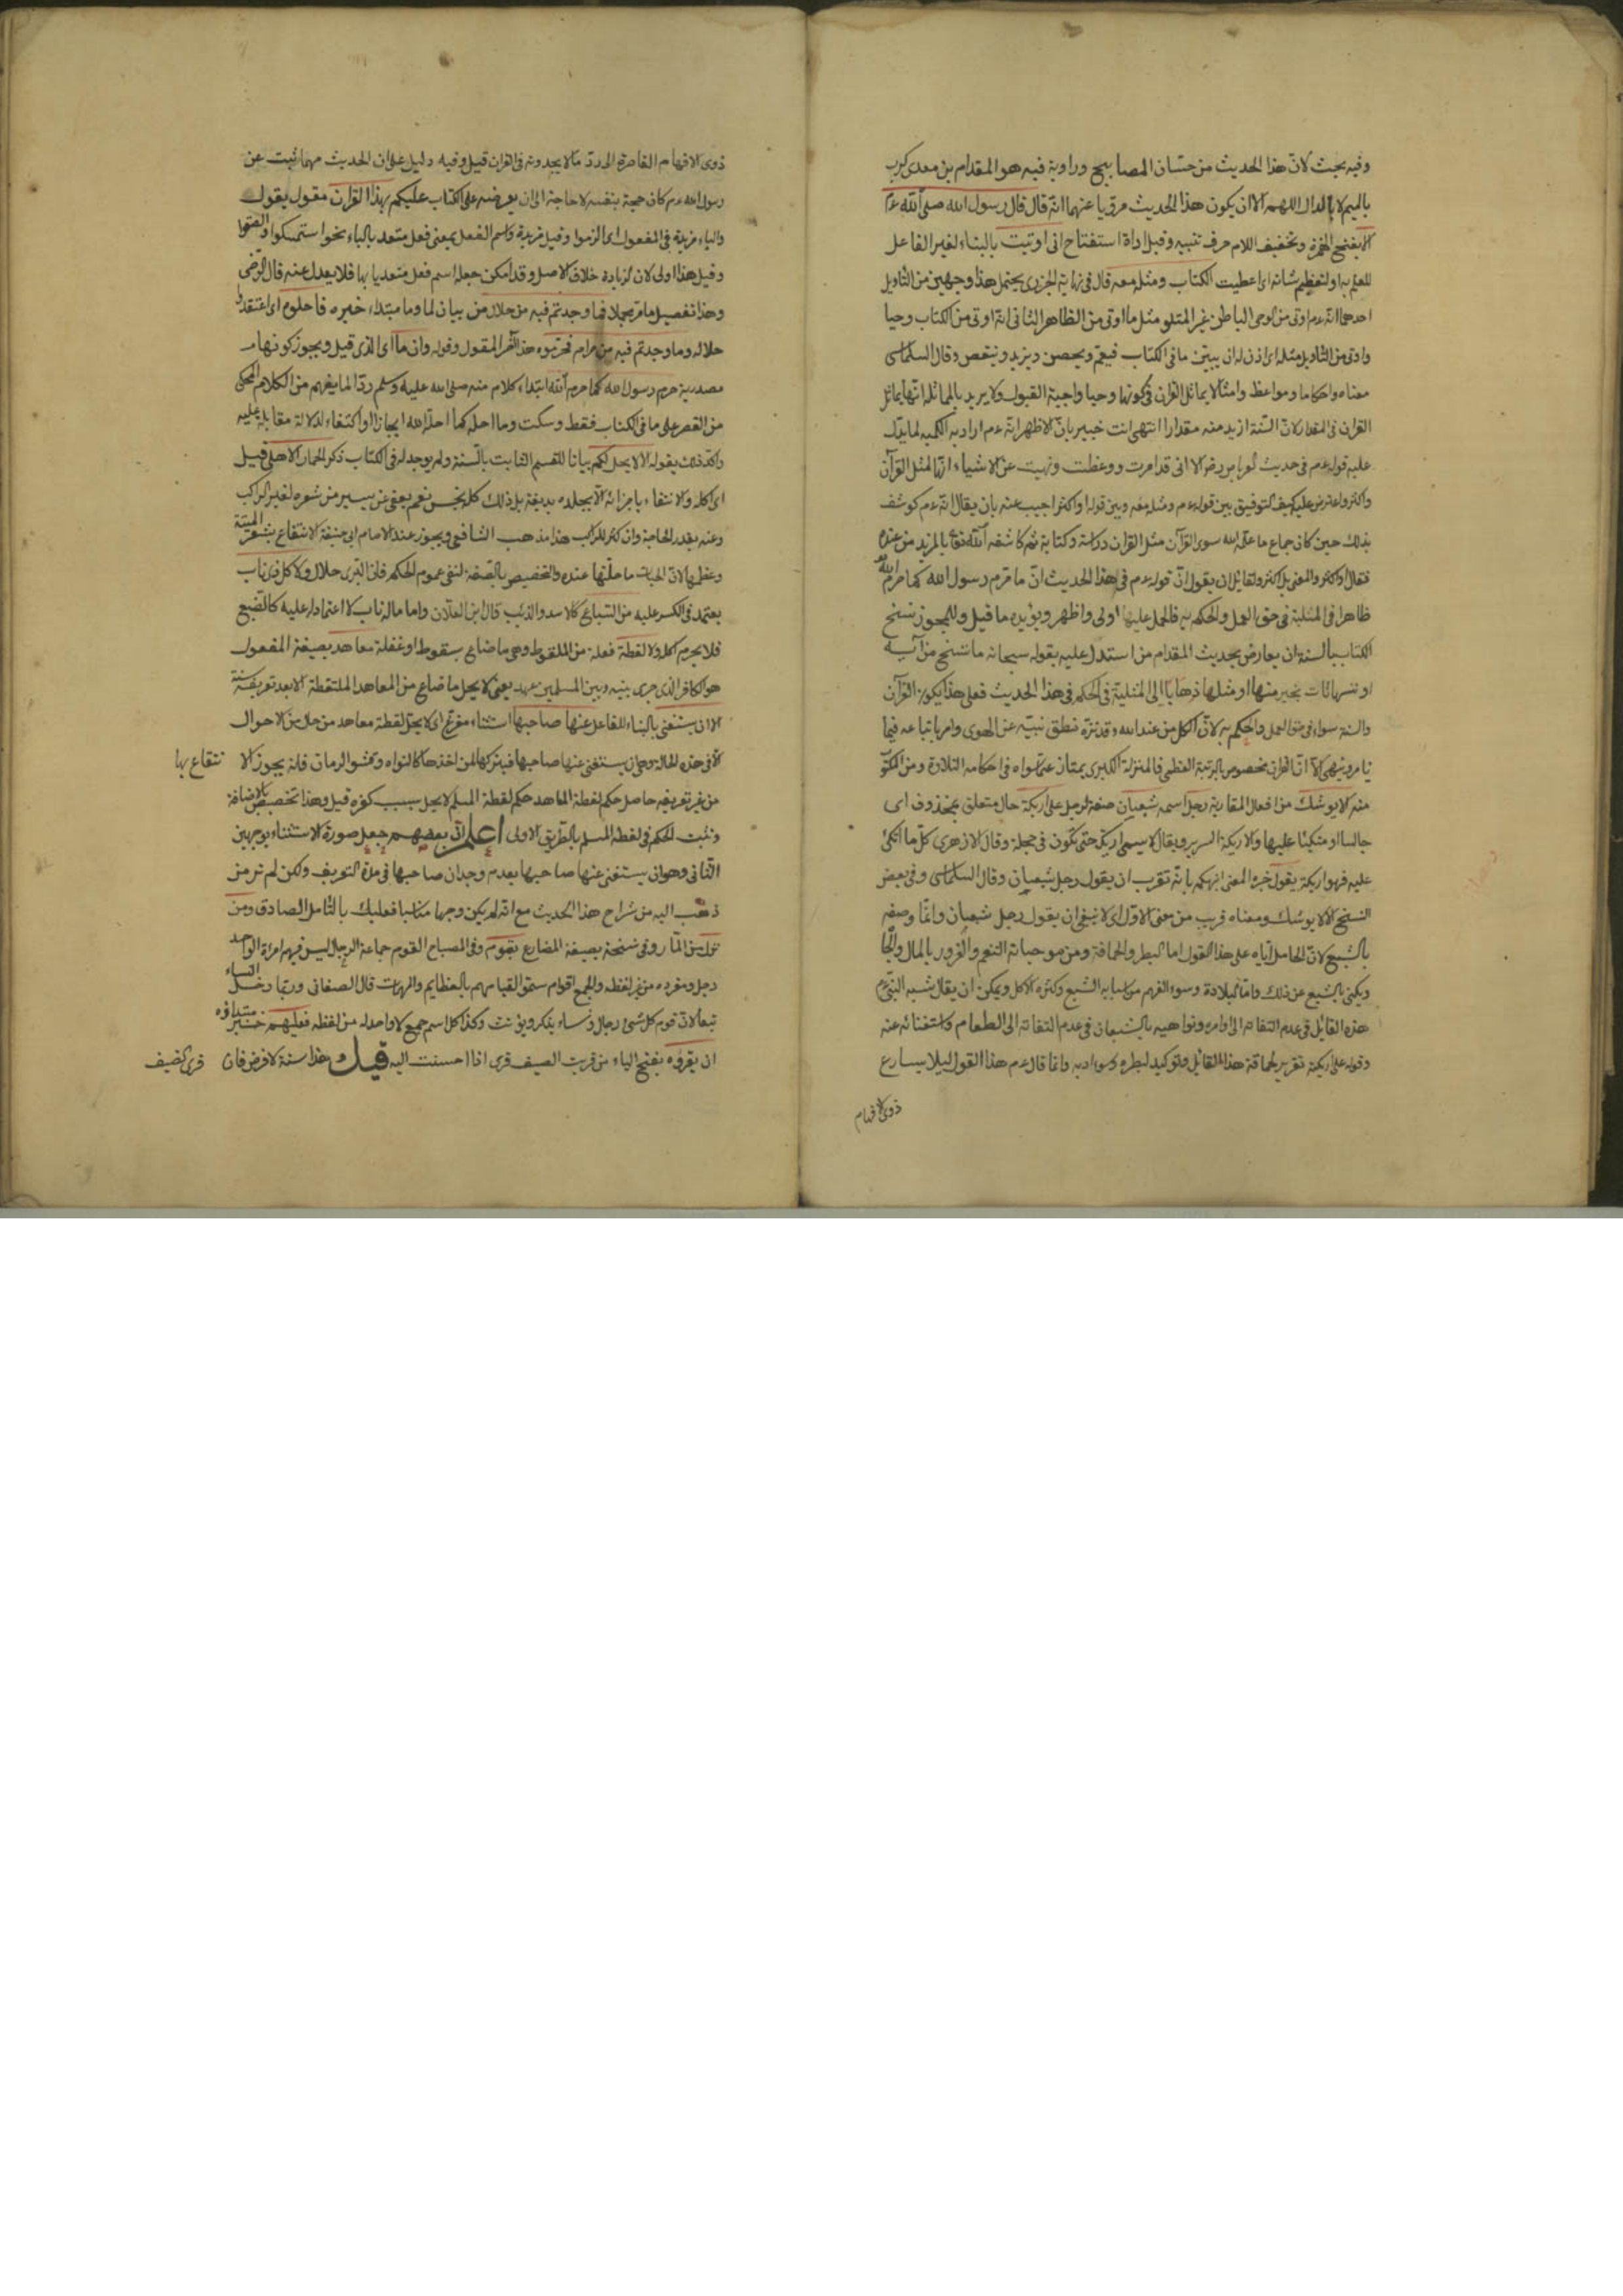 وفيه بحث لانّ هذا الحديث من حسان المصابيح وراويه فيه هو المقدام بن معدي كرب
بالميم لا بالدال اللهم الا ان يكون هذا الحديث مرويا عنهما انه قال قال رسول الله صلى الله عم
الا بفتح الهمزة وتخفيف اللام حرف تنبيه وقيل اداة استفتاح اني اوتيت بالبناء لغير الفاعل
للعلم به او لتعظيم شانه اى اعطيت الكتاب ومثله معه قال في نهاية الجزرى يحتمل هذا وجهين من التاويل
احدهما انه عم اوتى من الوحى الباطن غير المتلو مثل ما اوتى من الظاهر الثانى انه اوتى من الكتاب وحيا
واوتى من التاويل مثله اى اذن له ان يبين ما فى الكتاب فيعم ويخص ويزيد وينقص وقال السلماسى
معناه واحكاما ومواعظ وامثالا يماثل القرآن في كونها وحيا واجبة القبول ولا يريد بالمماثلة انها يماثل
القرآن فى المقدار لانّ السنة ازيد منه مقدارا انتهى انت خبير بانّ الاظهر انه عم اراد به الكمية لما يدل
عليه قوله عم فى حديث العرباض رض الا انى قد امرت ووعظت ونهيت عن الاشياء انها لمثل القرآن
واكثر واعترض عليه كيف التوفيق بين قوله عم ومثله معه وبين قوله او اكثر اجيب عنه بان يقال انه عم كوشف
بذلك حين كان جماع ما علمه الله سوى القرآن مثل القرآن دراسة وكتابة ثم كاشفه الله تعالى بالمزيد من عنده
فقال او اكثر والمعنى بل اكثر ولقائل ان يقول انّ قوله عم فى هذا الحديث انّ ما حرّم رسول الله كما حرم الله
ظاهر فى المثلية فى حق العمل والحكم به فالحمل عليها اولى واظهر ويؤيده ما قيل وللمجوز نسخ
الكتاب بالسنة ان يعارض بحديث المقدام من استدل عليه بقوله سبحانه ما ننسخ من آية
او ننسها نات بخير منها او مثلها ذهابا الى المثلية فى الحكم فى هذا الحديث فعلى هذا يكون القرآن
والسنة سواء فى حق العمل والحكم به لانّ الكل من عند الله وقد نزه نطق نبيّه عن الهوى وامر باتباعه فيما
يامر وينهى الا انّ القرآن مخصوص بالمرتبة العظمى فالمنزلة الكبرى يمتاز عما سواه فى احكامه التلاوة ومن
منه الا يوشك من افعال المقاربة رجل اسمه شبعان صفة لرجل على اريكة حال متعلق بمحذوف اى
جالسا او متكيئا عليها والاريكة السرير ويقال لا يسمى اريكة حتى تكون فى حجلة وقال الازهرى كل ما اتكئ
عليه فهو اريكة يقول خبره المعنى انهكم بانه تقرب ان يقول رجل شبعان وقال السلماسى وفى بعض
النسخ الا لا يوشك ومعناه قريب من معنى الاول اى لا ينبغى ان يقول رجل شبعان وانما وصفه
بالشبع لانّ الحامل اياه على هذا القول اما البطر والحماقة ومن موجباته التنعم والغرور بالمال والجاه
ويكنى بالشبع عن ذلك واما البلادة وسوء الفهم من اسبابه الشبع وكثرة الاكل ويمكن ان يقال شبه النبى عم
هذه القائل فى عدم التفاته الى اوامره ونواهيه بالشبعان فى عدم التفاته الى الطعام واستغنائه عنه
وقوله على اريكته تقرير لحماقة هذا القائل وتوكيد لبطره وسوء ادبه وانما قال عم هذا القول ليلا يسارع
ذوى الافهام
ذوى الافهام القاصرة الى ردّ ما لا يجدونه فى القران قيل وفيه دليل على ان الحديث مهما ثبت عن
رسول الله عم كان حجة بنفسه لا حاجة الى ان يعرضه على الكتاب عليكم بهذا القرآن مقول يقول
والباء مزيدة فى المفعول اى الزموا وقيل مزيدة واسم الفعل بمعنى فعل متعد بالباء نحو استمسكوا
وقيل هذا اولى لان الزيادة خلاف الاصل وقد امكن جعله اسم فعل متعديا بها فلا يعدل عنه قال الرضى
وهذا تفصيل ما مر مجملا فما وجدتم فيه من حلال من بيان لما وما مبتداء خبره فاحلوه اى اعتقدوا
حلاله وما وجدتم فيه من حرام فحرموه هذا آخر المقول وقوله وان ما اى الذى قيل ويجوز كونها
مصدرية حرم رسول الله كما حرم الله ابتداء كلام منه صلى الله عليه وسلم ردّا لما يفهم من الكلام المحكى
من القصر على ما فى الكتاب فقط وسكت وما احله كما احله الله ايجازا او اكتفاء لدلالة مقابله عليه
واكد ذلك بقوله الا لا يحل لكم بيانا للقسم الثابت بالسنة ولم يوجد له فى الكتاب ذكر الحمار الاهلى قيل
اى اكله ولا انتفاء باجزائه الا بجلده بدبغه بل ذلك كله نجس نعم يعفى عن يسير من شعره لغير الراكب
وعنه بقدر الحاجة وان كثر للراكب هذا مذهب الشافعى ويجوز عند الامام ابى حنيفة الانتفاع بشعر الميتة
وعظمها لانّ الحياة ما حلتها عنده والتخصيص بالصفة لنفى عموم الحكم فانّ البرى حلال ولا كل ذى ناب
يعتمد فى الكسر عليه من السباع كالاسد والذئب قال ابن واما ماله ناب لا اعتماد له عليه كالضبع
فلا يحرم اكله ولا لقطة فعلة من الملقوط وهى ما ضاع بسقوط او غفلة معاهد بصيغة المفعول
هو الكافر الذى جرى بينه وبين المسلمين عهد يعنى لا يحل ما ضاع من المعاهد الملتقطة الا بعد تعريفه سنة
الا ان يستغنى بالبناء للفاعل عنها صاحبها استثناء مفرغ اى لا يحل لقطة معاهد من حال من الاحوال
الا فى هذه الحالة وهى ان يستغنى عنها صاحبها فيتركها لمن اخذها كالنواة وقشر الرمان فانه يجوز الا نتفاع بها
من غير تعريفه حاصل حكم لقطة المعاهد حكم لقطة المسلم لا يحل بسبب كفره قيل وهذا تخصيص بالاضافة
وثبت الحكم فى لقطة المسلم بالطريق الاولى اعلم انّ بعضهم جعل صورة الاستثناء بوجهين
الثانى وهو ان يستغنى عنها صاحبها بعدم وجدان صاحبها فى مدة التعريف ولكن لم نر من
ذهب اليه من شراح هذا الحديث مع انه لم يكن وجها مناسبا فعليك بالتامل الصادق ومن
نزل من المار وفى نسخة بصيغة المضارع بقوم وفى المصباح القوم جماعة الرجال ليس فيهم امراة الواحد
رجل ومفرده من غير لفظه والجمع اقوام سموا لقيامهم بالعظايم والمهمات قال الصغانى وربما دخل النساء
تبعا لانّ قوم كل نبى رجال ونساء ويذكر ويؤنث وكذا كل اسم جمع لا واحد له من لفظه فعليهم خبر مبتداؤه
ان يقروه بفتح الياء من قريت الضيف قرى اذا احسنت اليه قيل وهذا سنة لا فرض فان قرى الضيف